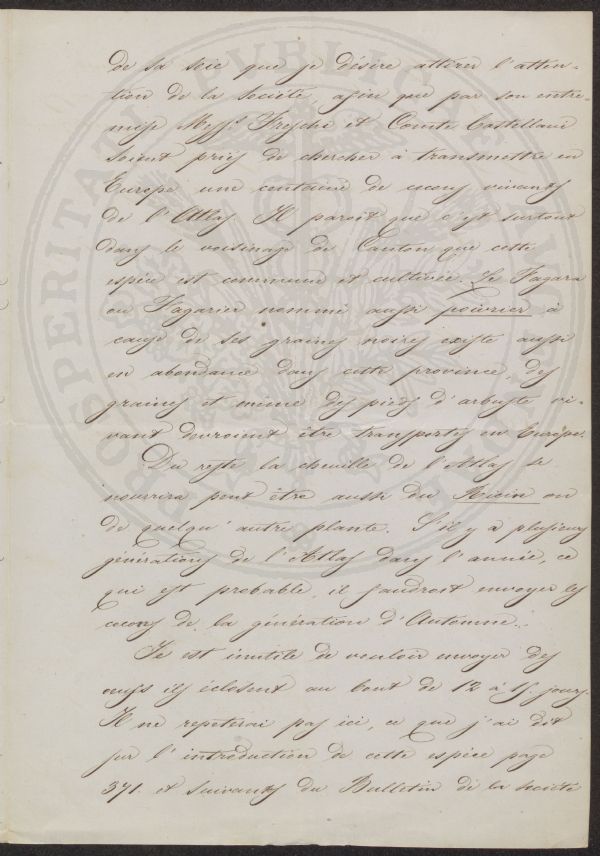 de sa soie que je désire attirer l'atten-
tion de la Société, afin que par son entre-
mise Mess.rs Freschi et Comte Castellani
soient priés de chercher à transmettre en
Europe une centaine de cocons vivants
de l'Atlas. Il paroit que c'est surtout
dans le voisinage de Canton que cette
espèce est commune et cultivée. Le Fagara
ou Fagarier nommé aussi poivrier à
cause de ses graines noires existe aussi
en abondance dans cette province des
graines et même des pieds d'arbuste vi-
vant devroient être transportés en Europe.
Du reste la chenille de l'Atlas se
nourrira peut être aussi du Ricin ou
de quelqu'autre plante. S'il y a plusieurs
générations de l'Atlas dans l'année, ce
qui est probable, il faudroit envoyer les
cocons de la génération d'Automne.
Il est inutile de vouloir envoyer des
oeufs ils éclosent au bout de 12 à 15. jours.
Il ne repeterai pas ici, ce que j'ai dit
sur l'introduction de cette espèce page
371. et suivants du Bulletin de la société
PROSPERITATI PVBLICAE AVGENDAE